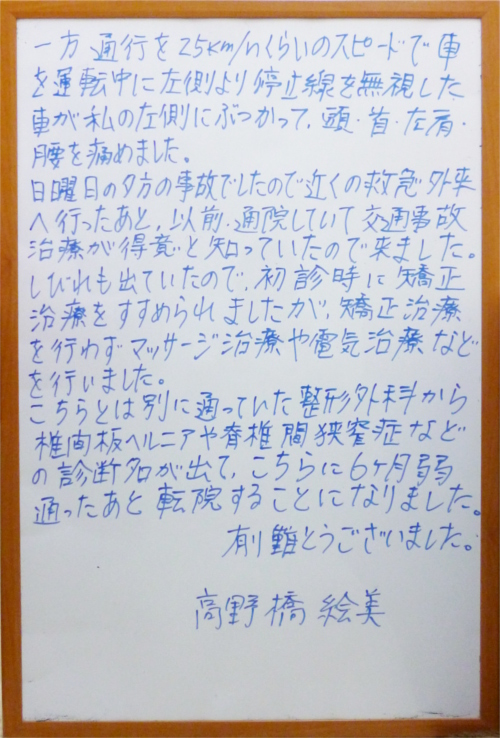 一方通行を25km/hくらいのスピードで車
を運転中に左側より停止線を無視した
車が私の左側にぶつかって、頭・首・左肩・
腰を痛めました。
日曜日の夕方の事故でしたので近くの救急外来
へ行ったあと、以前通院していて交通事故
治療が得意と知っていたので来ました。
しびれも出ていたので、初診時に矯正
治療をすすめられましたが、矯正治療
を行わずマッサージ治療や電気治療など
を行いました。
こちらとは別に通っていた整形外科から
椎間板ヘルニアや脊椎間狭窄症など
の診断名が出て、こちらに6ヶ月弱
通ったあと転院することになりました。
有り難とうございました。
高野橋絵美